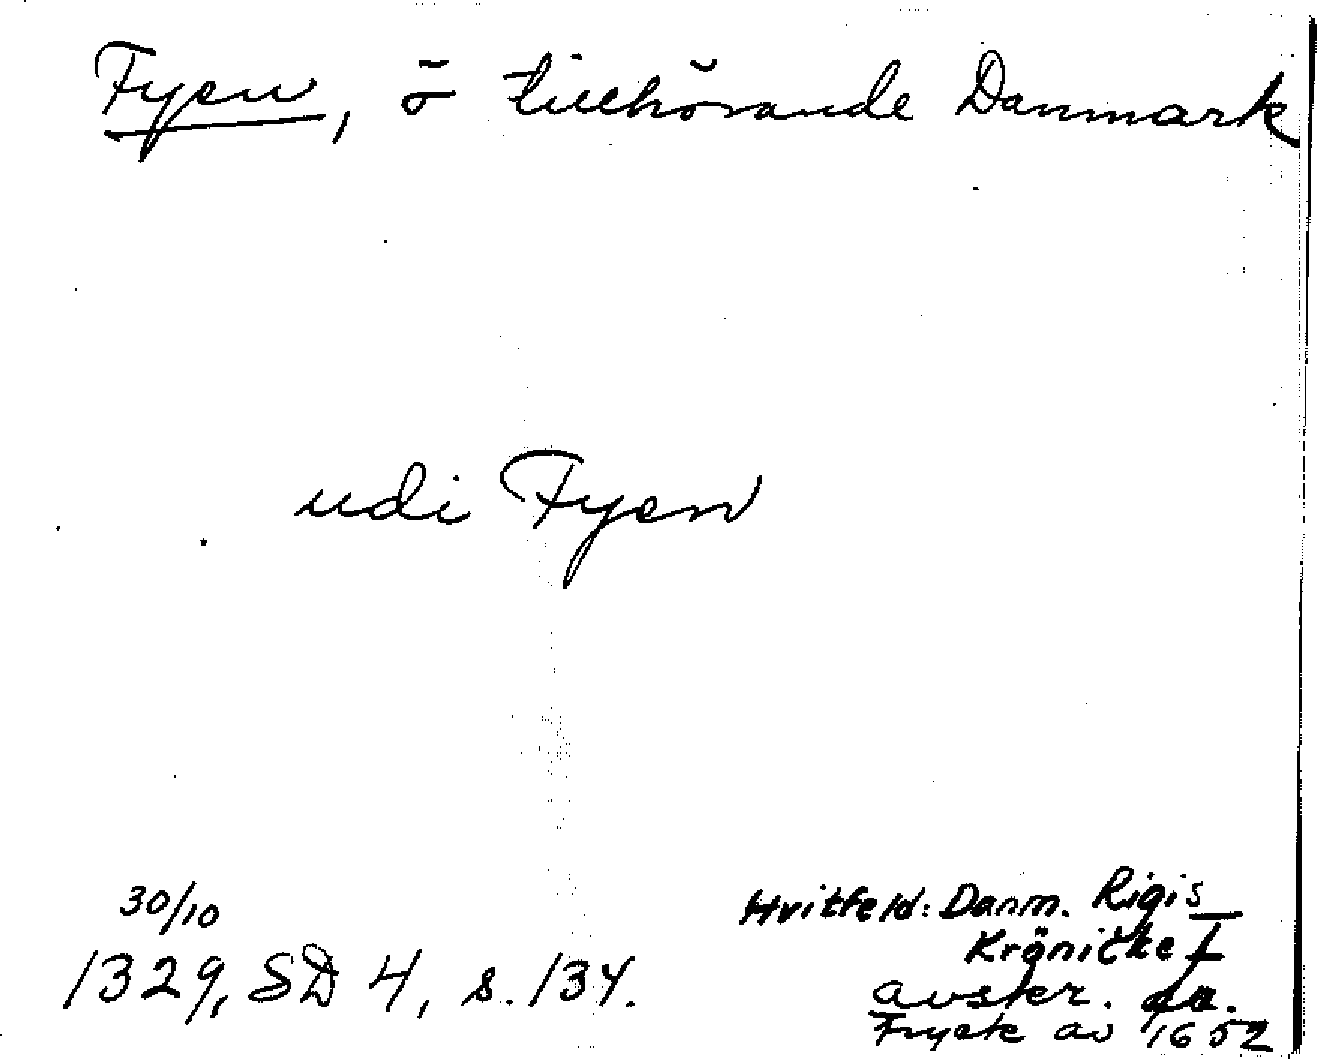 Fyen, ö tillhörande Danmark
udi Fyen
30/10
1329, SD 4, s. 134.
Hvitfeld: Danm. Rigis
Krönicke I
avskr.
Tryck av 1652